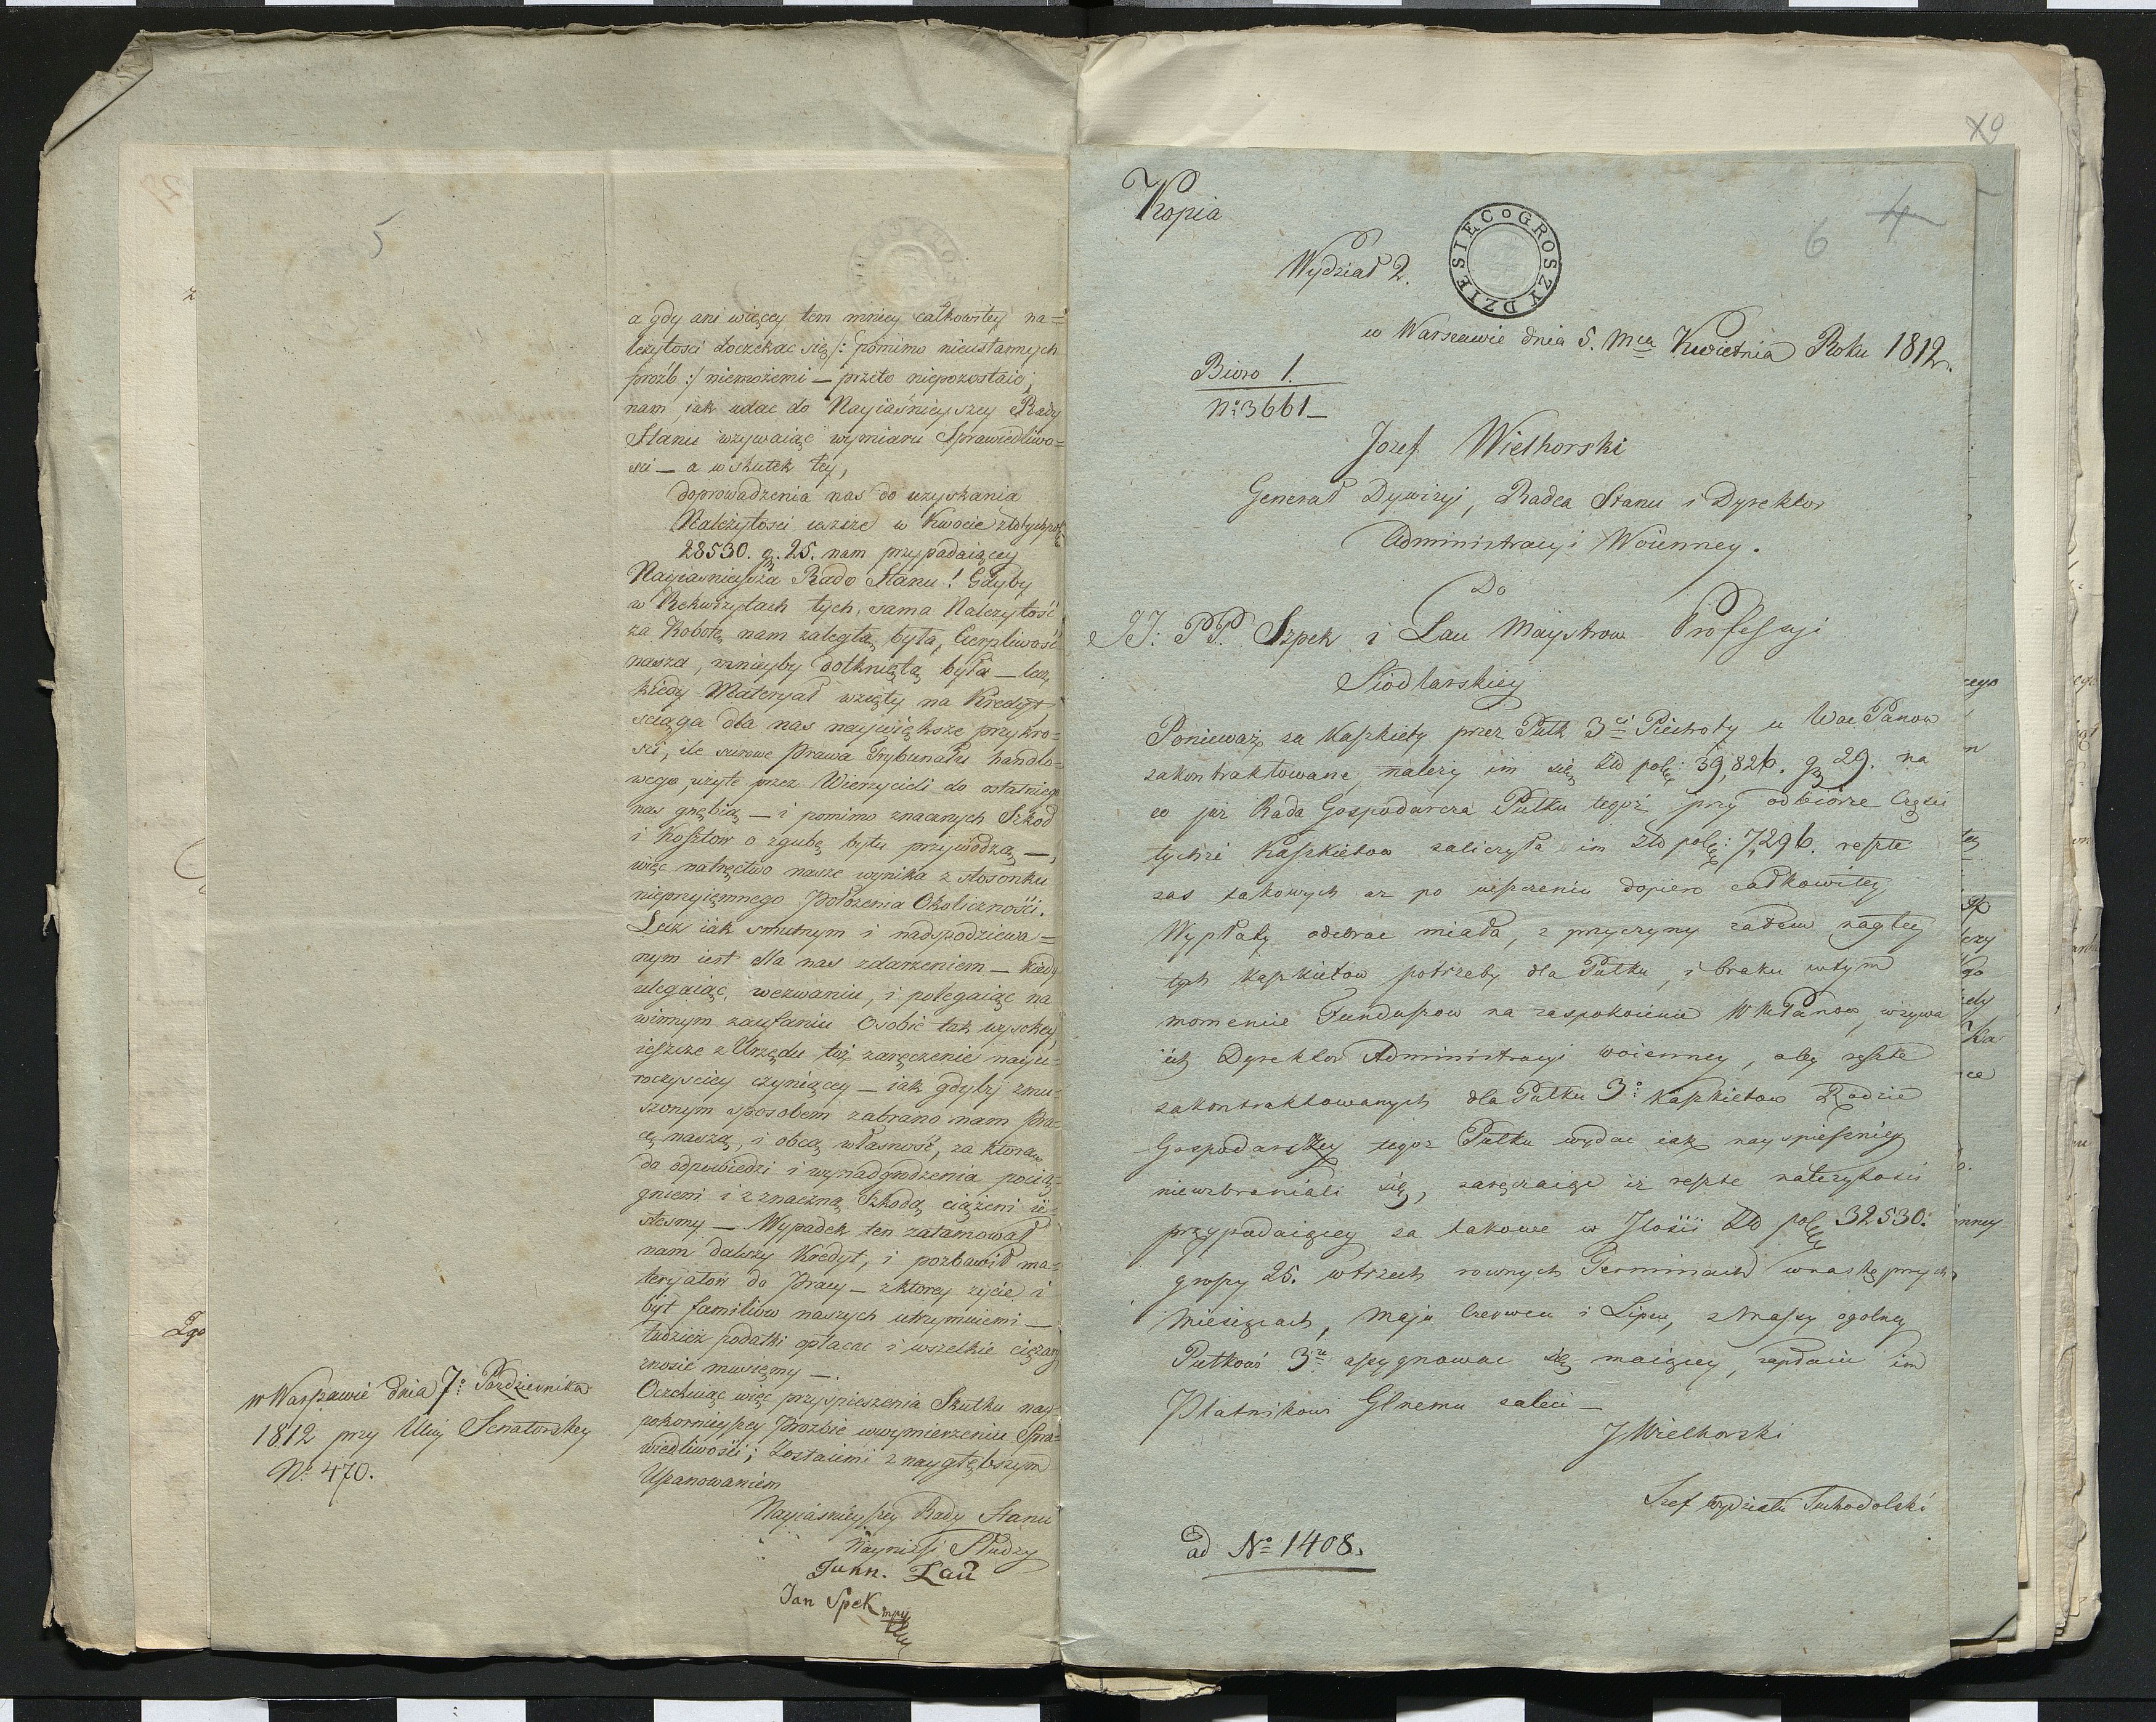 5
a gdy ani więcey tem mniey całkowitey na=
leżytosci doczekac się /: pomimo nieustannych
prozb :/ niemożemi — przeto niepozostaie,
nam jak udac do Nayiaśnieyszey Rady
Stanu wzywaiąc wymiaru Sprawiedliwo=
sci — a w skutek tey,
doprowadzenia nas do uzyskania
Należytosci ieszcze w Kwocie złotych pol
28530. g. 25. nam przypadaiącey
Nayiasnieysza Rado Stanu! Gdyby
w Rekwizytach tych, sama Należytość
za Robotę nam zaległą była, Cierpliwość
nasza, mnieyby dotkniętą była — lecz
kiedy Materyał wzięty na Kredyt
sciąga dla nas naywiększe przykro=
sci, ile surowe Prawa Trybunału handlo=
wego, użyte przez Wierzycieli do ostatniego
nas gnębią — i pomimo znacznych Szkod
i Kosztow o zgubę bytu przywodzą —,
więc natręctwo nasze wynika z stosonku
nieprzyięmnego Położenia Okoliczności.
Lecz iak smutnym i nadspodziewa=
nym iest dla nas zdarzeniem — kiedy
ulegaiąc wezwaniu, i polegaiąc na
winnym zaufaniu Osobie tak wysokey,
ieszcze z Urzędu toż zaręczenie nayu=
roczysciey czyniącey — iak gdyby zmu=
szonym sposobem zabrano nam pra=
cę naszą, i obcą własność, za ktorą
do odpowiedzi i wynadgrodzenia pocią=
gnieni i z znaczną Szkodą ciążeni ie=
stesmy — Wypadek ten zatamował
nam dalszy Kredyt, i pozbawił ma=
teryałow do Pracy — z ktorey życie i
byt familiow naszych utrzymuiemi —
tudzież podatki opłacac i wszelkie ciężary
znosic musięmy —.
Oczekuiąc więc przyspieszenia Skutku nay=
pokornieyszey Prozbie wwymierzeniu Spra=
wiedliwości; Zostaiemi z naygłębszym
Uszanowaniem
Nayiaśnieyszey Rady Stanu
Nayniżsi Słudzy
Johh. Lau
Jan Spek mpp
w Warszawie dnia 7o Pazdziernika
1812 przy Ulicy Senatorskey
No 470.
Kopia
6 4
Wydział 2.
DZIESIĘC GROSZY
w Warszawie dnia 5. Mca Kwietnia Roku 1812.
Biuro 1.
No 3661 —
Jozef Wielhorski
Generał Dywizyi, Radca Stanu i Dyrektor
Administracyi Woienney.
Do
JJ: PP. Szpek i Lau Maystrow Professyi
Siodlarskiey
Ponieważ za Kaszkiety przez Pułk 3ci Piechoty u Wac Panow
zakontraktowane, należy im się Zło pol: 39,826. g 29. na
co już Rada Gospodarcza Pułku tegoż przy odbiorze Części
tychże Kaszkietow zaliczyła im Zło pol: 7,296. resztę
zas takowych az po uiszczeniu dopiero całkowitey
Wypłaty odebrac miała, z przyczyny zatem nagłey
tych Kaszkietow potrzeby dla Pułku, i braku wtym
momencie Funduszow na zaspokoienie WWPanow, wzywa
ich Dyrektor Administracyi woienney, aby resztę
zakontraktowanych dla Pułku 3o Kaszkietow Radzie
Gospodarczey tegoż Pułku wydac iak nayspieszniey
niewzbraniali się, zaręczaiąc iż resztę należytosci
przypadaiącey za takowe w Jlości Zło pol 32530.
groszy 25. w trzech rownych Terminach wnastępnych
Miesiącach, Maju Czerwcu i Lipcu, z Massy ogolney
Pułkowi 3mu assygnowac się maiącey, zapłacic im
Płatnikowi Glnemu zaleci —
J Wielhorski
Szef Wydziału Suchodolski
ad No 1408.